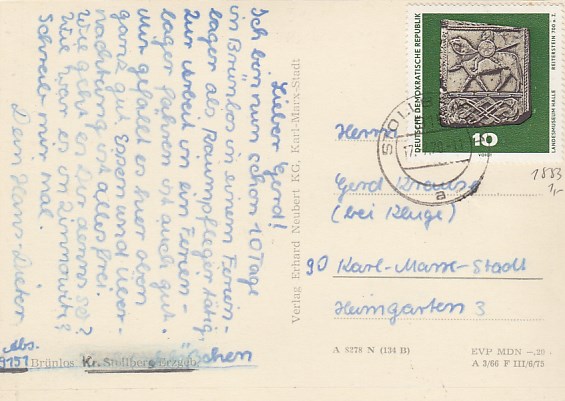 Lieber Gerd!
Ich bin nun schon 10 Tage
in Brünlos in einem Ferien-
lager als Raumpfleger tätig.
Zur Arbeit in ein Ferien-
lager fahren ist auch gut.
Mir gefällt es hier oben
ganz gut. Essen und Über-
nachtung ist alles frei.
Wie geht es Dir denn so?
Wie war es in Zinnowitz?
Schreib mir mal.
Dein Hans-Dieter
Abs.
9151 Brünlos Kr. Stollberg-Erzgeb.
Verlag Erhard Neubert KG, Karl-Marx-Stadt
DEUTSCHE DEMOKRATISCHE REPUBLIK
REITERSTEIN 700 n. Z.
LANDESMUSEUM HALLE
10
STOLLB
17.
a
1883
1,-
Herrn
Gerd Krause
(bei Kluge)
90 Karl-Marx-Stadt
Heimgarten 3
A 8278 N (134 B)
EVP MDN –,20
A 3/66 F III/6/75